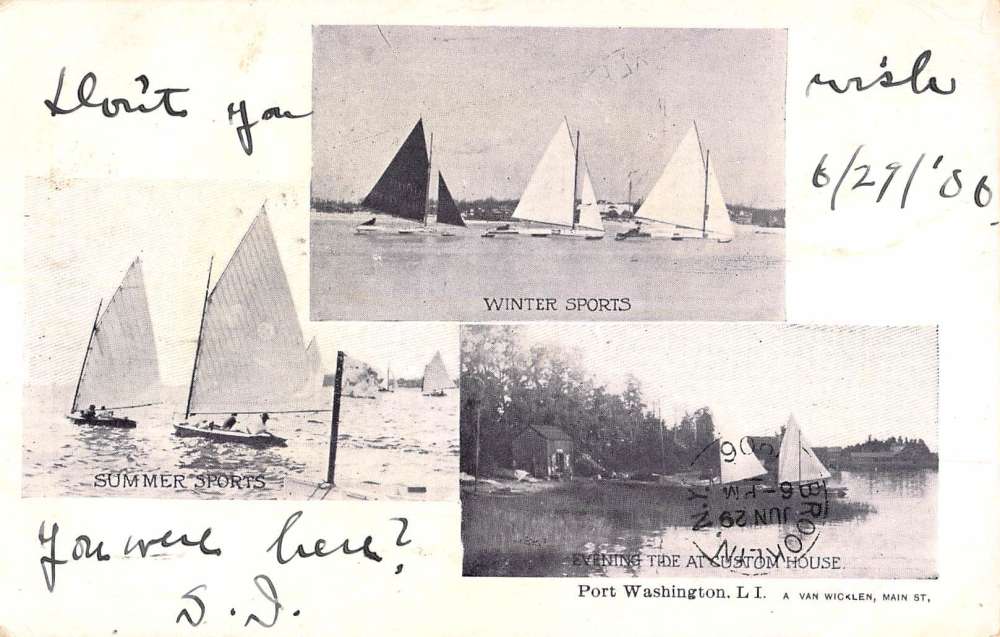 Don't you wish
6/29/'06
WINTER SPORTS
SUMMER SPORTS
You were here?
S. I.
BROOKLYN, N.Y.
JUN 29
6-PM
906
EVENING TIDE AT CUSTOM HOUSE.
Port Washington. L I. A VAN WICKLEN, MAIN ST,